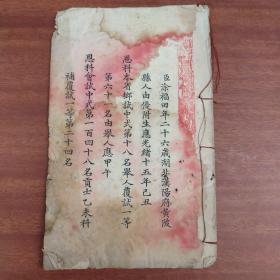 臣涂福田年二十六歲湖北漢陽府黃陂
縣人由優附生應光緒十五年己丑
恩科本省鄉試中式第十八名舉人覆試一等
第六十一名由舉人應甲午
恩科會試中式第一百四十八名貢士乙未科
補覆試一等第二十四名